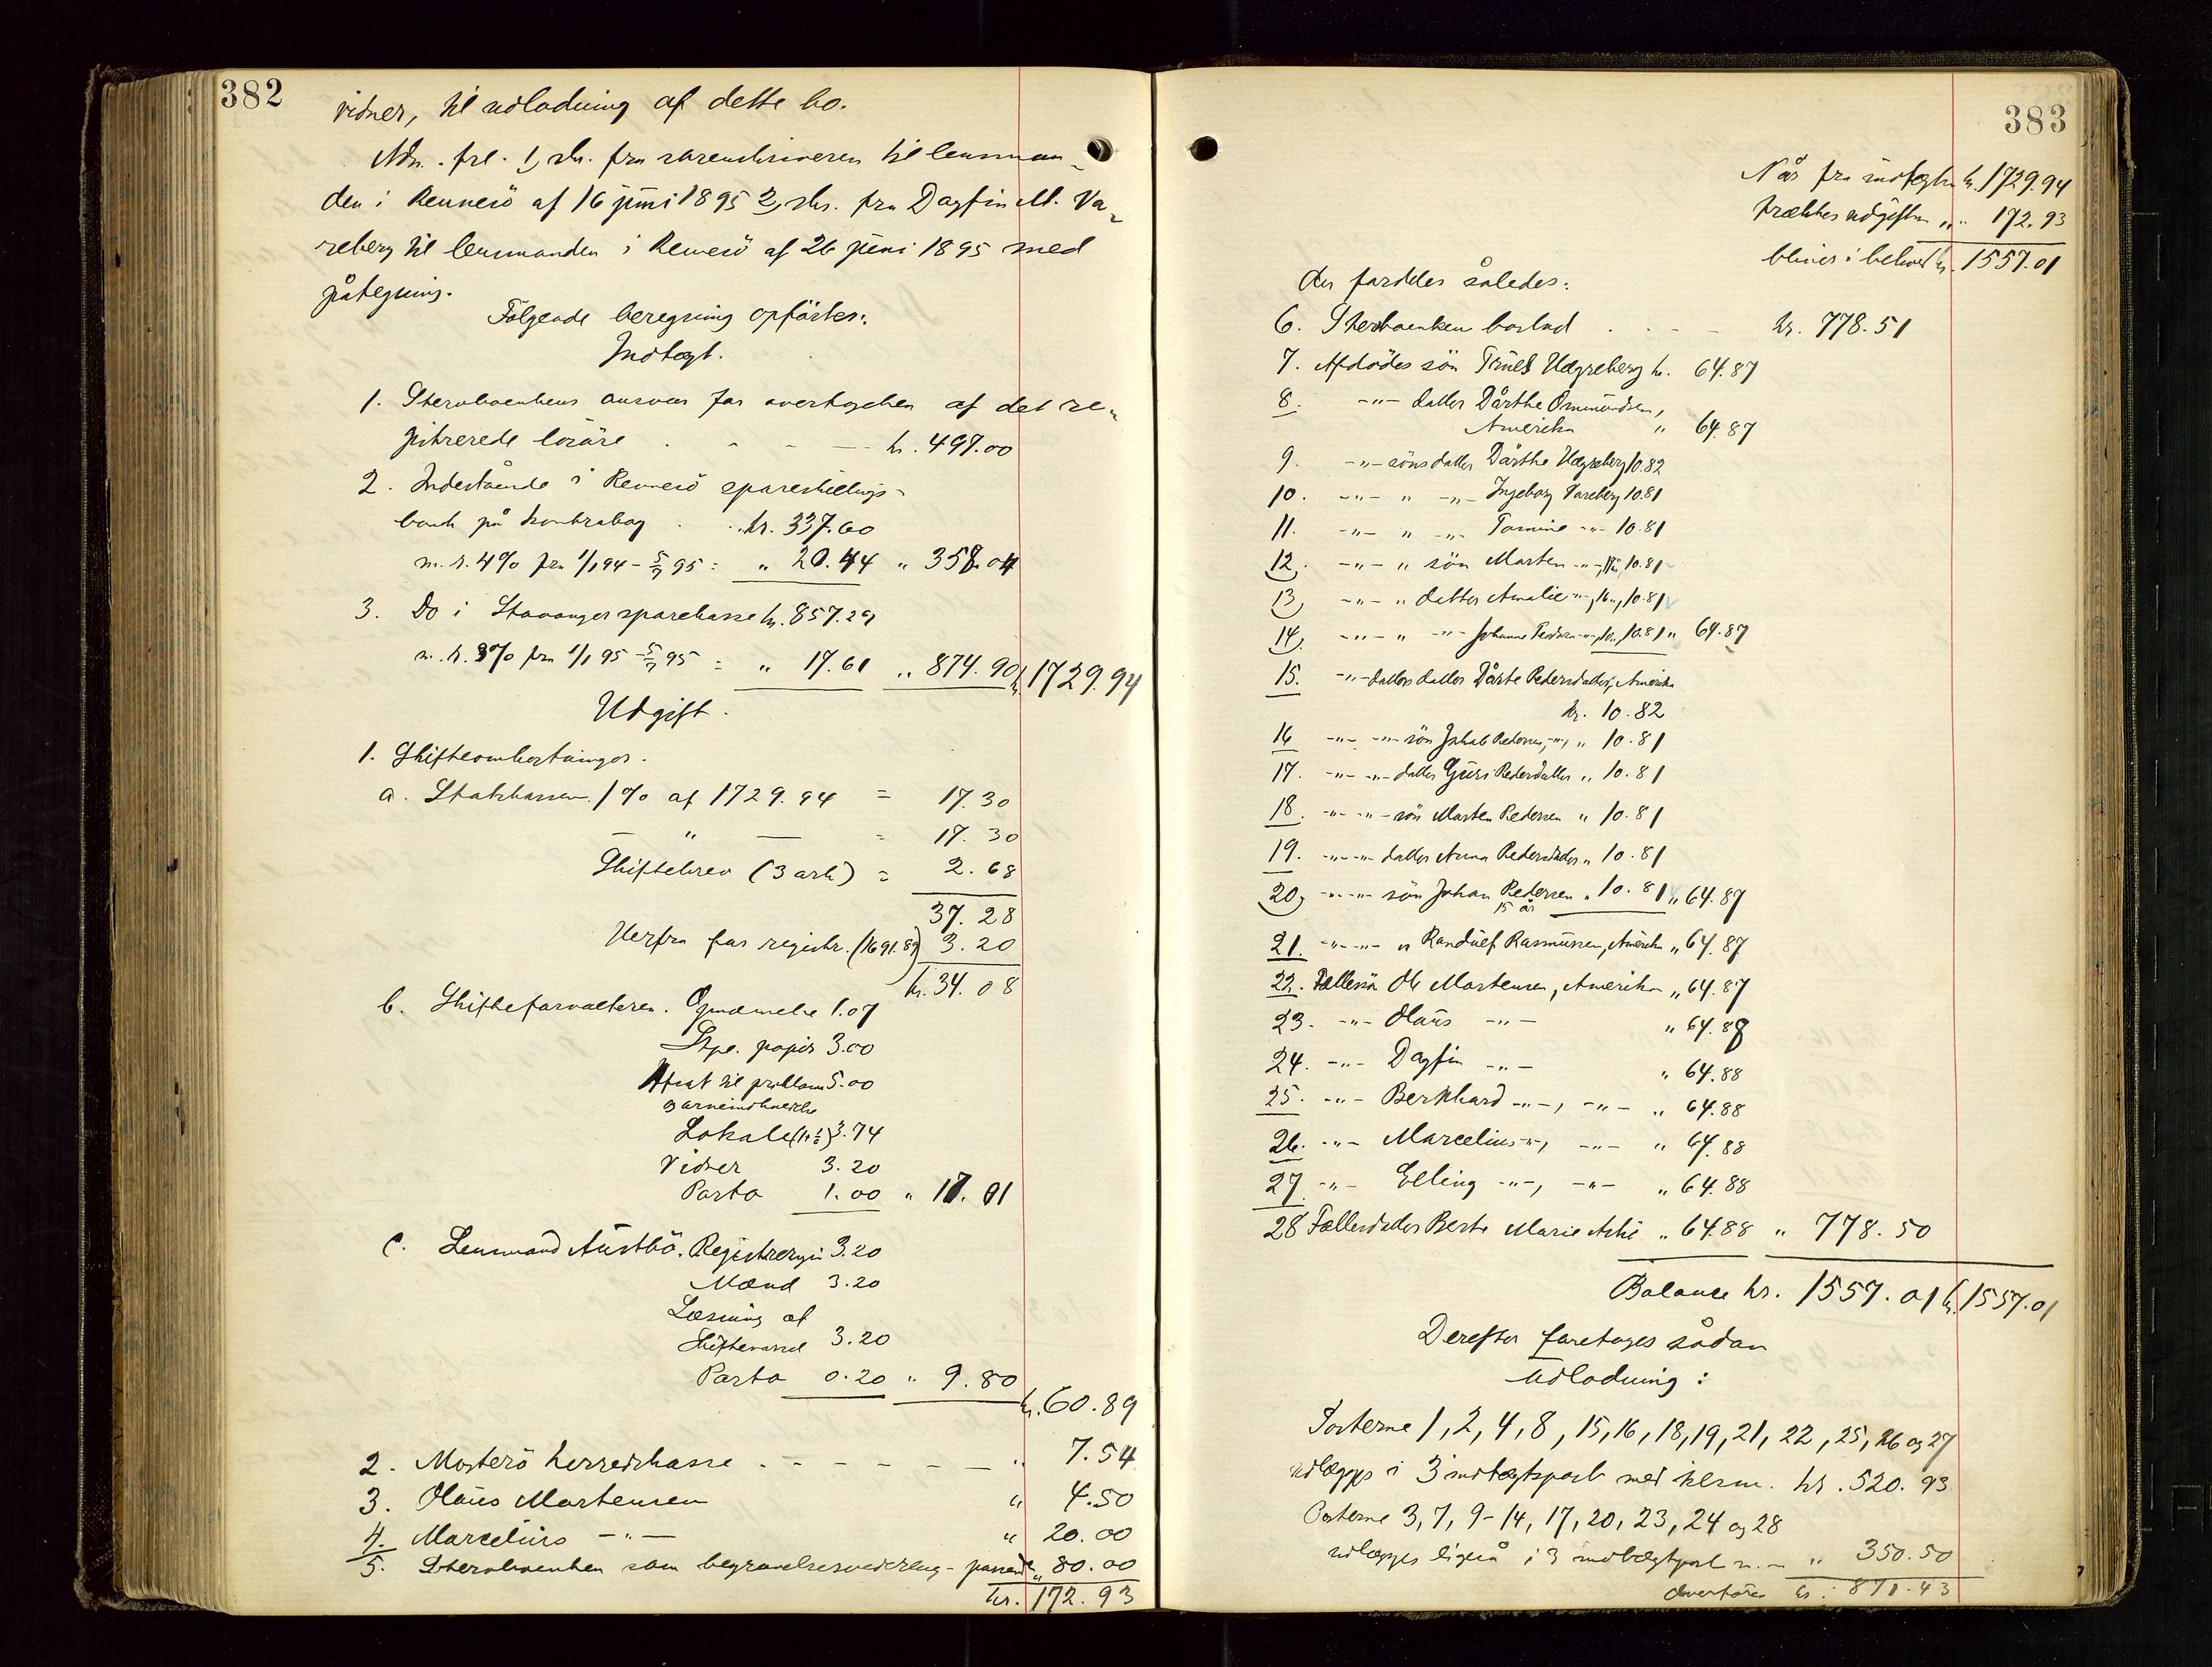 382
vidner, til udlodning af dette bo.
Adm. frl. 1, skr. fra sorenskriveren til lensman-
den i Rennesö af 16 juni 1895 2, skr. fra Dagfin M. Va-
reberg til lensmanden i Rennesö af 26 juni 1895 med
påtegning.
Fölgende beregning opförtes:
Indtægt.
1. Stervboenkens ansvar for overtagelsen af det re-
gistrerede lösöre . - - - kr. 497.00
2. Indestående i Rennesö spareskillings-
bank på kontrabog . . kr. 337.60
m. r. 4% fra 1/1 94 - 5/7 95 = " 20.44 " 358.04
3. Do i Stavanger sparekasse kr. 857.29
m. r. 3% fra 1/1 95 - 5/7 95 = " 17.61 " 874.90 kr. 1729.94
Udgift.
1. Skifteomkostninger.
a. Statskassen 1% af 1729.94 = 17.30
— " — = 17.30
Skiftebrev (3 ark) = 2.68
37.28
Herfra for registr. (1691.89) 3.20
kr. 34.08
b. Skifteforvalteren. Opnævnelse 1.07
Stpl. papir 3.00
Attest til proklama 5.00
og arveindkaldelse
Lokale 3.74
Vidner 3.20
Porto 1.00 " 17.01
c. Lensmand Austbö. Registrergn 3.20
Mænd 3.20
Læsning af
Skiftevarsel 3.20
Porto 0.20 " 9.80
kr. 60.89
2. Mosterö herredskasse . - - - - - " 7.54
3. Olaus Mortensen " 4.50
4. Marcelius -"- " 20.00
5. Stervboenken som begravelsesvederlag - passende " 80.00
kr. 172.93
383
Når fra indtægten kr. 1729.94
trækkes udgiften " 172.93
blives i behold kr. 1557.01
der fordeles således:
6. Sterboenken boslod . - - - kr. 778.51
7. Afdödes sön Truls Udgreberg kr. 64.87
8. -"- datter Dårthe Ommundsen,
Amerika " 64.87
9. -"- sönsdatter Dårthe Vagreberg 10.82
10. -"- " -"- Ingeborg Vareberg 10.81
11. -"- " -"- Tomine -"- 10.81
12. -"- " sön Morten -"- 10.81
13, -"- " datter Amalie -"-, 16 ", 10.81
14, -"- " -"- Johanne -"-, 10.81 " 64.87
15. -"- datters datter Dårte Pedersdatter, Amerika
kr. 10.82
16 -"- -"- sön Jakob Pedersen, -"-, " 10.81
17. -"- -"- datter Guri Pedersdatter " 10.81
18. -"- -"- sön Morten Pedersen " 10.81
19. -"- -"- datter Anna Pedersdatter " 10.81
20, -"- -"- sön Johan Pedersen " 10.81 " 64.87
15 år
21. -"- -"- " Randulf Rasmussen, Amerika " 64.87
22. Fællessön Ole Mortensen, Amerika " 64.87
23. -"- Olaus -"- " 64.88
24. -"- Dagfin -"- " 64.88
25. -"- Bernhard -"-, -"- " 64.88
26. -"- Marcelius -"-, -"- " 64.88
27. -"- Elling -"-, -"- " 64.88
28 Fællesdatter Berte Marie Aske " 64.88 " 778.50
Balance kr. 1557.01 kr. 1557.01
Derefter foretages sådan
Udlodning:
Posterne 1, 2, 4, 8, 15, 16, 18, 19, 21, 22, 25, 26 og 27
udlægges i 3 indtægtspost med tilsm. kr. 520.93
Posterne 3, 7, 9-14, 17, 20, 23, 24 og 28
udlægges ligeså i 3 indtægtspost m. - " 350.50
Overföres kr. 871.43